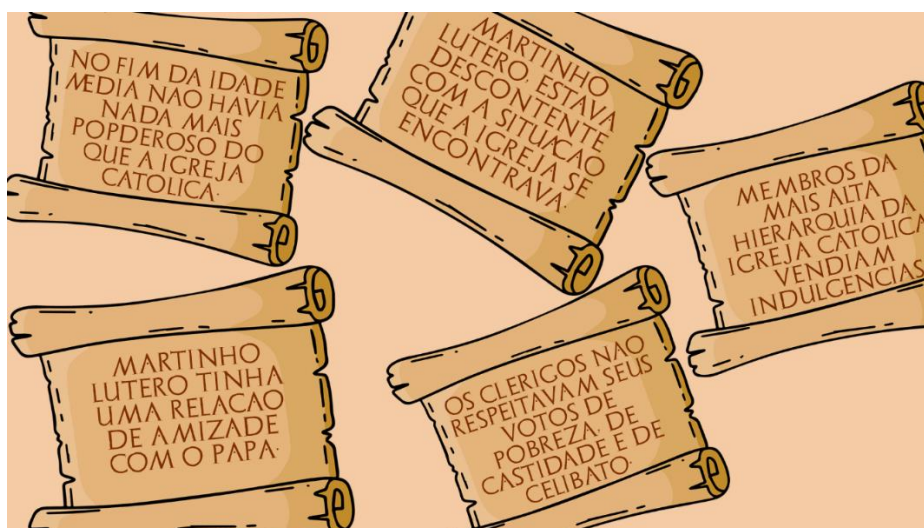 NO FIM DA IDADE
MEDIA NAO HAVIA
NADA MAIS
POPDEROSO DO
QUE A IGREJA
CATOLICA.
MARTINHO
LUTERO. ESTAVA
DESCONTENTE
COM A SITUACAO
QUE A IGREJA SE
ENCONTRAVA.
MEMBROS DA
MAIS ALTA
HIERARQUIA DA
IGREJA CATOLICA
VENDIAM
INDULGENCIAS
MARTINHO
LUTERO TINHA
UMA RELACAO
DE AMIZADE
COM O PAPA.
OS CLERIGOS NAO
RESPEITAVAM SEUS
VOTOS DE
POBREZA. DE
CASTIDADE E DE
CELIBATO.